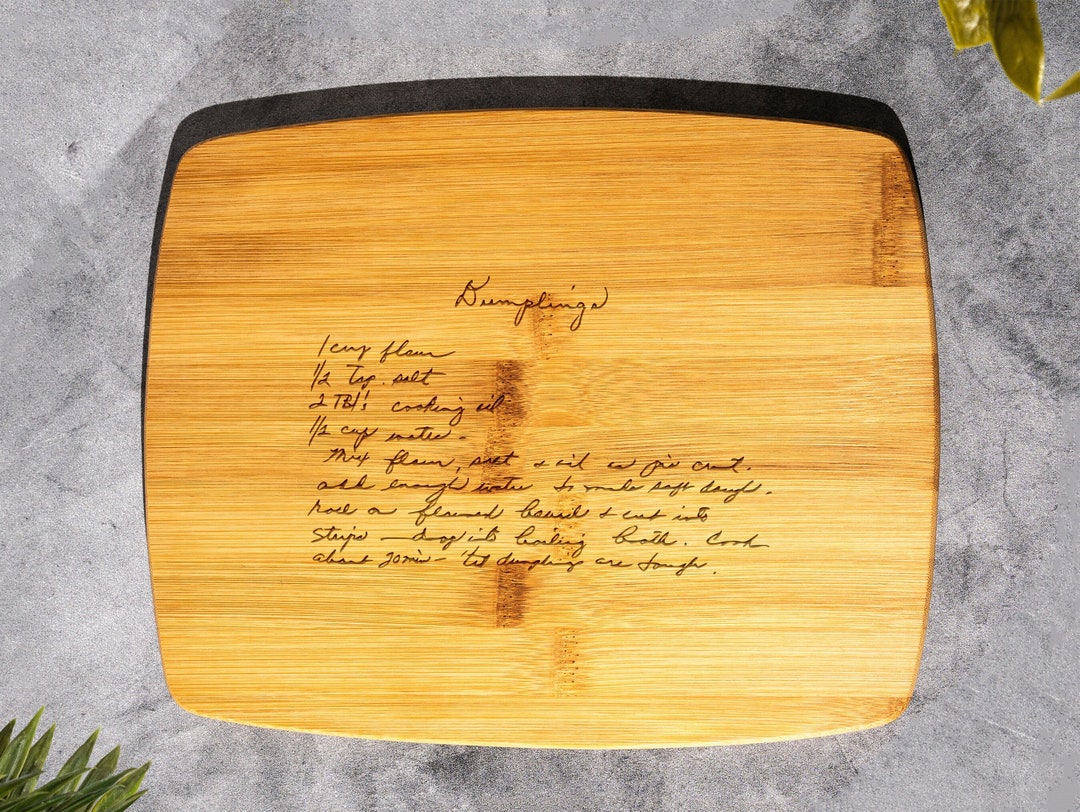 Dumplings
1 cup flour
1/2 Tsp. salt
2 Tbl's cooking oil
1/2 cup water -
Mix flour, salt & oil as pie crust.
add enough water to make soft dough.
Roll on floured board & cut into
strips — drop into boiling broth. Cook
about 20 min - 'til dumplings are tough.